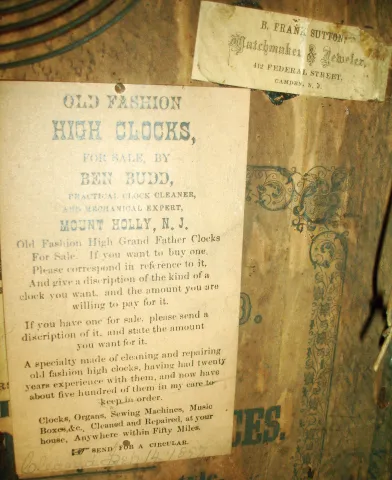 B. FRANK SUTTON,
Watchmaker & Jeweler,
412 FEDERAL STREET,
CAMDEN, N. J.
OLD FASHION
HIGH CLOCKS,
FOR SALE, BY
BEN BUDD,
PRACTICAL CLOCK CLEANER,
AND MECHANICAL EXPERT,
MOUNT HOLLY, N. J.
Old Fashion High Grand Father Clocks
For Sale. If you want to buy one,
Please correspond in reference to it,
And give a discription of the kind of a
clock you want, and the amount you are
willing to pay for it.
If you have one for sale, please send a
discription of it, and state the amount
you want for it.
A specialty made of cleaning and repairing
old fashion high clocks, having had twenty
years experience with them, and now have
about five hundred of them in my care to
keep in order.
Clocks, Organs, Sewing Machines, Music
Boxes, &c., Cleaned and Repaired, at your
house, Anywhere within Fifty Miles.
☞ SEND FOR A CIRCULAR.
CES.